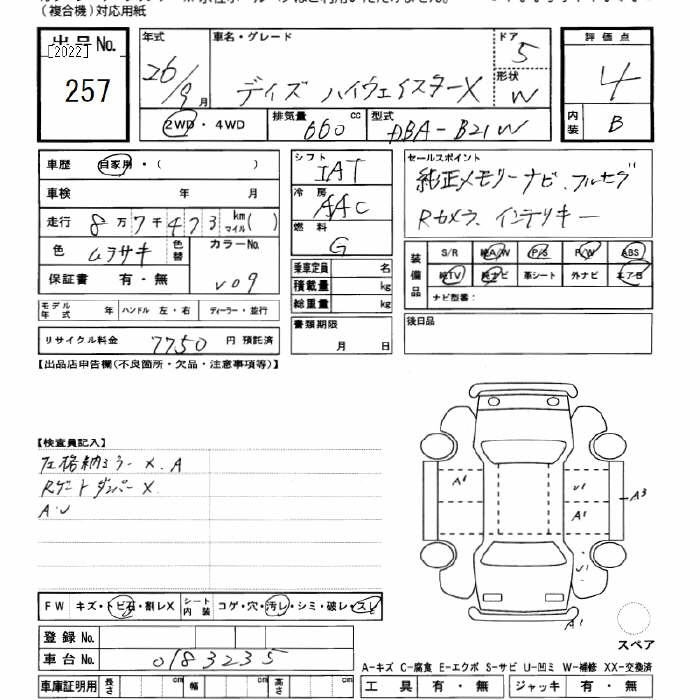 (複合機)対応用紙
出品No.
[2022]
257
年式 26/9月
車名・グレード デイズ ハイウェイスターX
ドア 5
形状 W
評価点 4
内装 B
2WD・4WD
排気量 660 cc
型式 DBA-B21W
車歴 自家用・( )
車検 年 月
走行 8万7千473 km マイル( )
色 ムラサキ 色替
カラーNo. V09
保証書 有・無
モデル年式 年 ハンドル 左・右 ディーラー・並行
リサイクル料金 7750 円 預託済
シフト IAT
冷房 AAC
燃料 G
乗車定員 名
積載量 kg
総重量 kg
書類期限
月 日
セールスポイント
純正メモリーナビ.フルセグ
Rカメラ、インテリキー
装備品
S/R 純A/W P/S P/W ABS
純TV 純ナビ 革シート 外ナビ エアB
ナビ型番:
後日品
【出品店申告欄(不良箇所・欠品・注意事項等)】
【検査員記入】
左格納ミラー X. A
Rゲートダンパー X
A・U
A1 U1 A1 U1 A3 A1
FW キズ・トビ石・割レX シート内装 コゲ・穴・汚レ・シミ・破レ・スレ
登録No.
車台No. 0183235
スペア
A-キズ C-腐食 E-エクボ S-サビ U-凹ミ W-補修 XX-交換済
車庫証明用 長さ cm 幅 cm 高さ cm
工具 有・無 ジャッキ 有・無